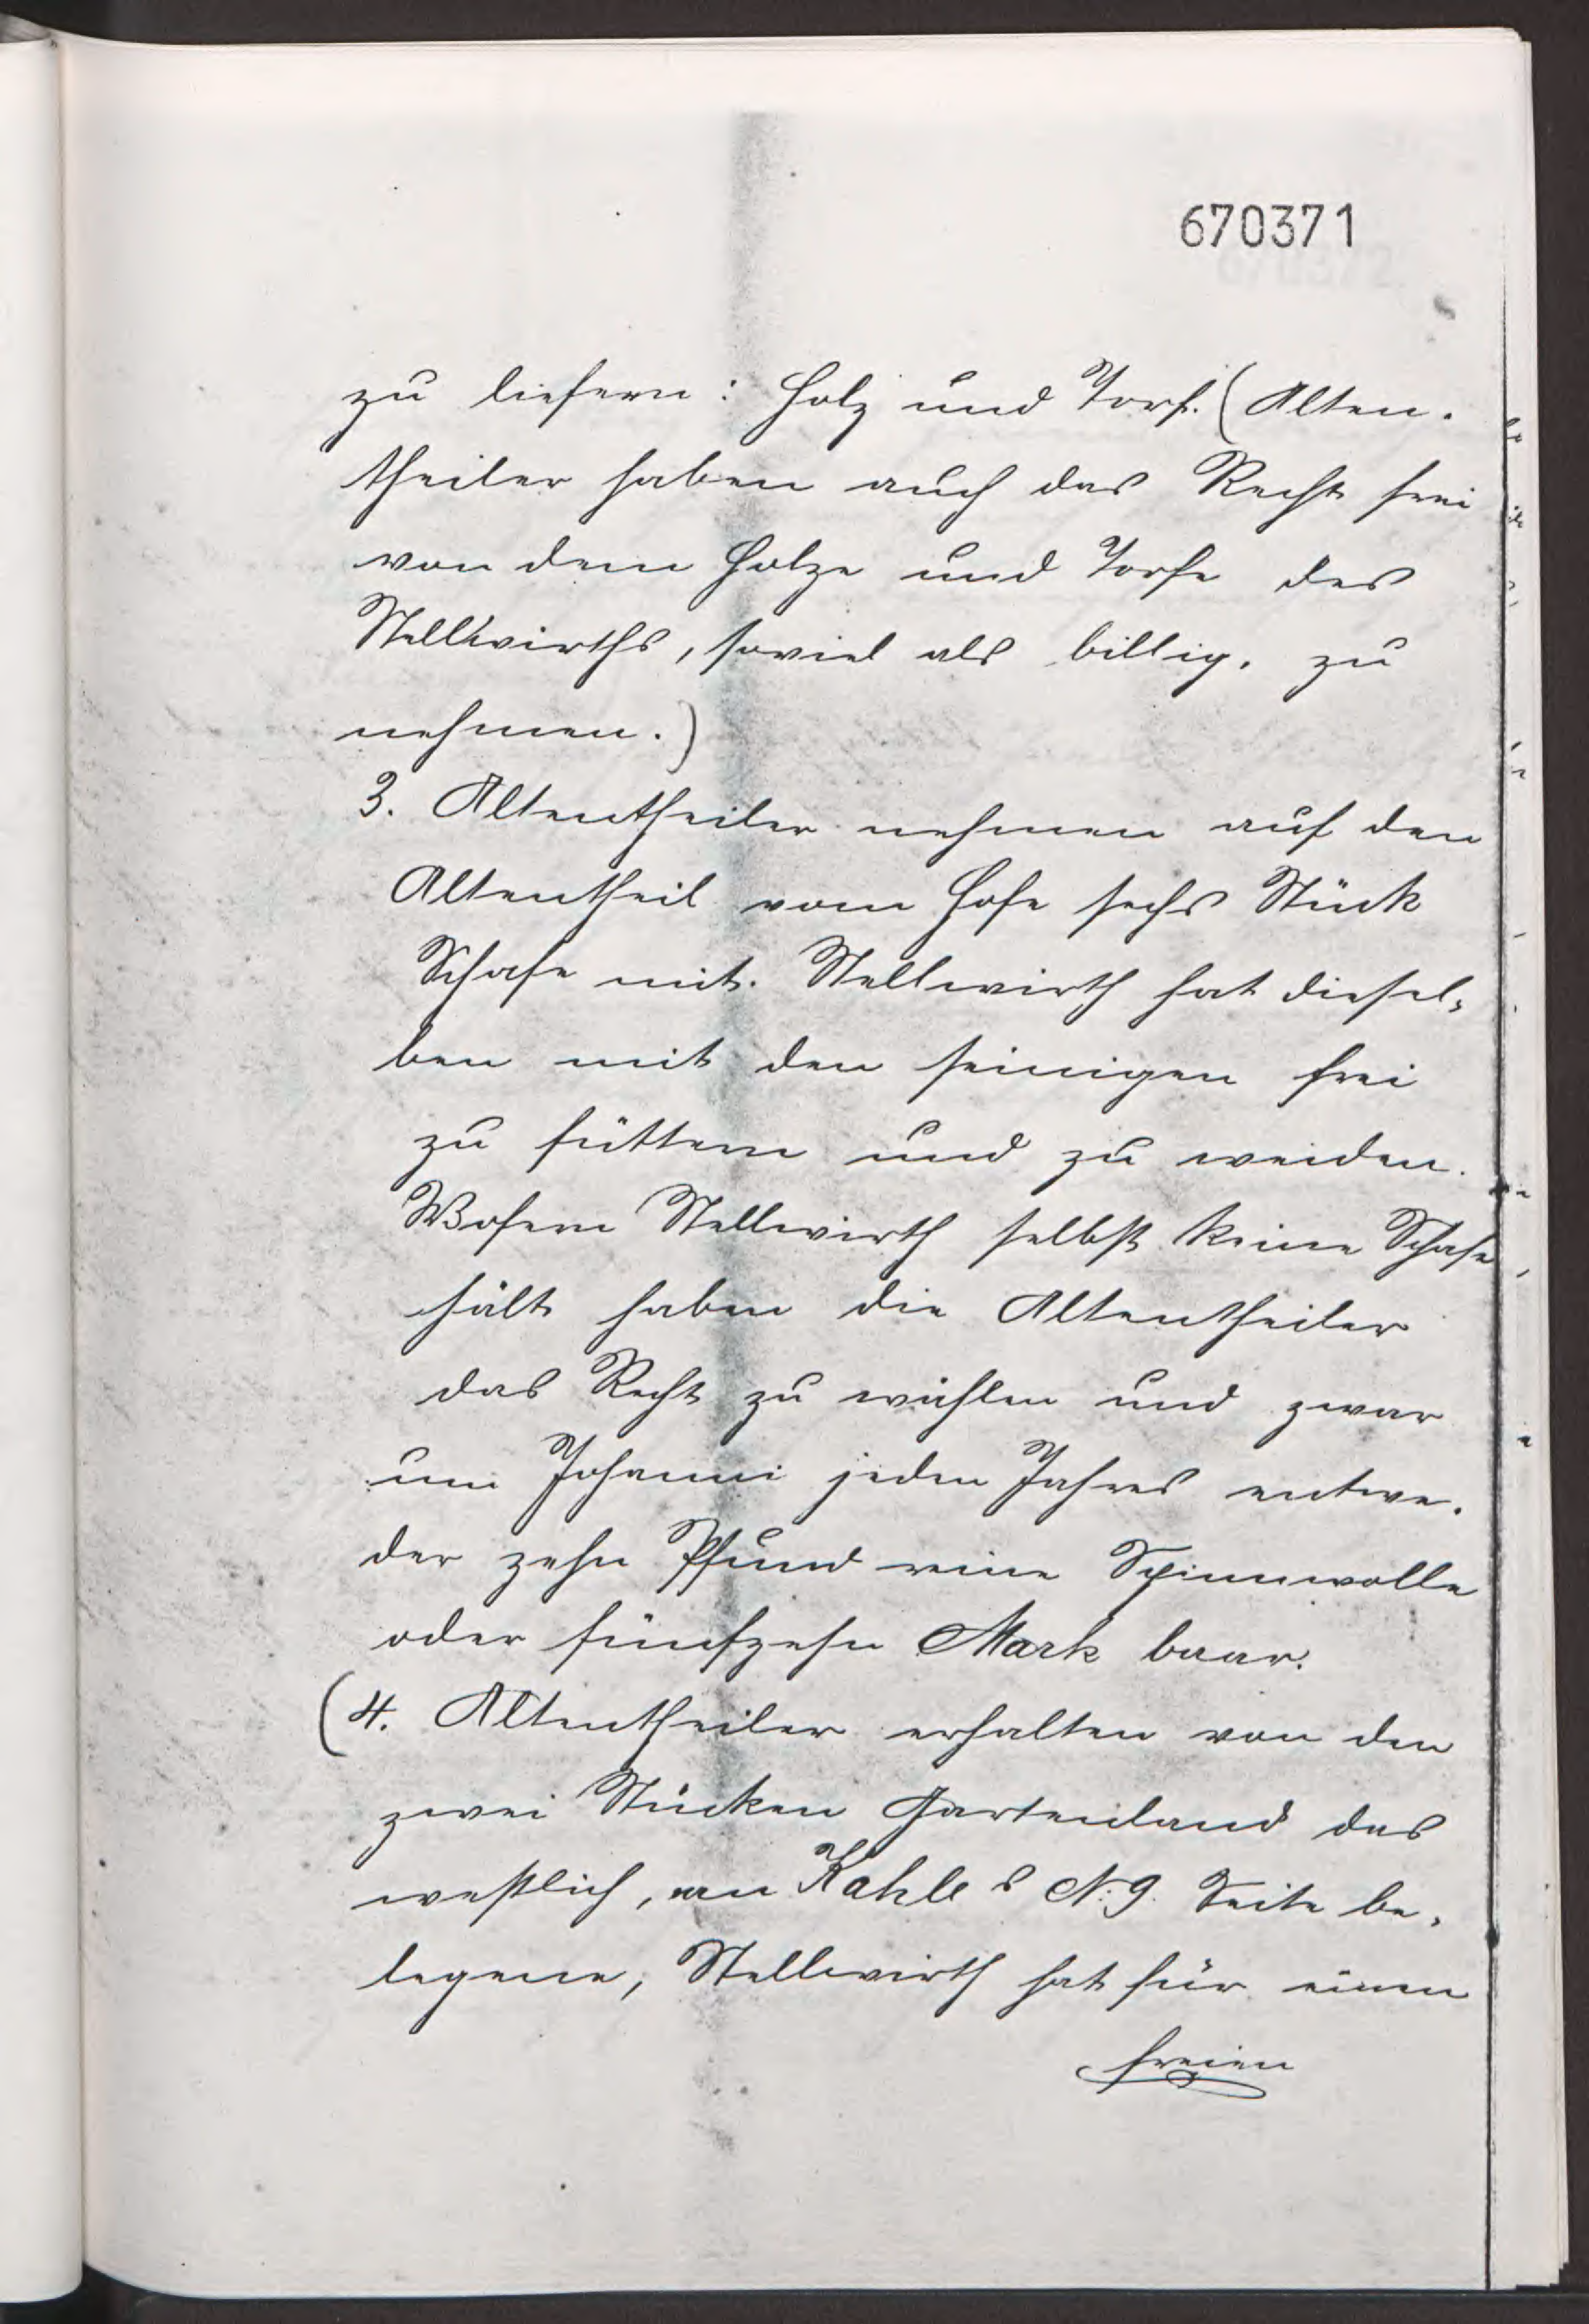 670371
zu liefern: Holz und Torf. (Alten-
theiler haben auch das Recht frei
von dem Holze und Torfe des
Stellwirths, soviel als billig, zu
nehmen.)
3. Altentheiler nehmen auf den
Altentheil vom Hofe sechs Stück
Schafe mit. Stellwirth hat diesel-
ben mit den seinigen frei
zu füttern und zu weiden.
Wofern Stellwirth selbst keine Schafe
hält haben die Altentheiler
das Recht zu wählen und zwar
um Johanni jeden Jahres entwe-
der zehn Pfund reine Spinnwolle
oder fünfzehn Mark baar.
(4. Altentheiler erhalten von den
zwei Stücken Gartenland das
westlich, an Kahle's N. 9. Seite be-
legene, Stellwirth hat für einen
freien